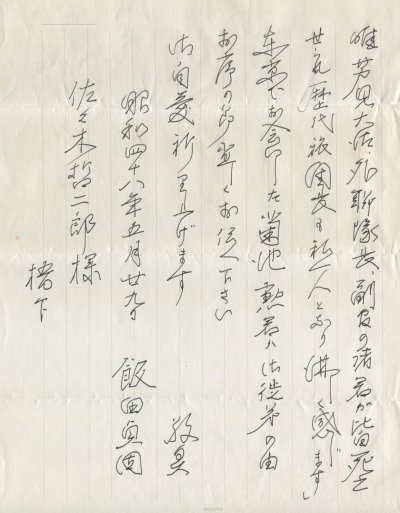 唯芳見大佐、泥聯隊長、副官の諸君が皆死亡
せられ歴代旅団長も私一人となり沸感じます」
東京でお会いした菊池勲君は御従弟の由
お序の節単々お伝へ下さい
御自愛祈り上げます 敬具
昭和四十八年五月廿九日 飯田貞固
佐々木哲二郎様
楮下